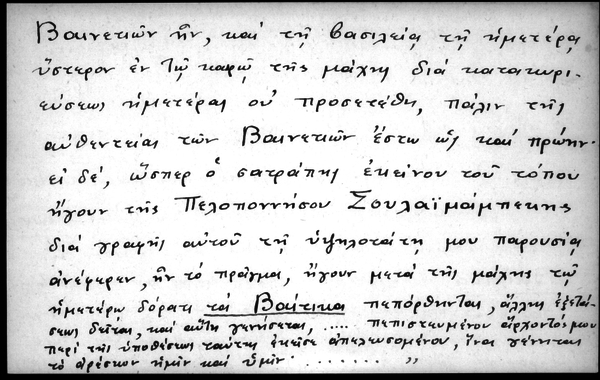 Βαινετιῶν ἦν, καί τῇ βασιλείᾳ τῇ ἡμετέρᾳ
ὕστερον ἐν τῷ καιρῷ τῆς μάχης διά κατακυρι-
εύσεως ἡμετέρας οὐ προσετέθη, πάλιν τῆς
αὐθεντείας τῶν Βαινετιῶν ἔστω ὡς καί πρώην·
εἰ δέ, ὥσπερ ὁ σατράπης ἐκείνου τοῦ τόπου
ἤγουν τῆς Πελοποννήσου Σουλαϊμάμπεκης
διά γραφῆς αὐτοῦ τῇ ὑψηλοτάτῃ μου παρουσίᾳ
ἀνέφερεν, ἦν τό πρᾶγμα, ἤγουν μετά τῆς μάχης τῷ
ἡμετέρῳ δόρατι τά Βάτικα πεπόρθηνται, ἄλλης ἐξετά-
σεως δεῖται, καί αὕτη γενήσεται, ..... πεπιστευμένου ἄρχοντός μου
περί τῆς ὑποθέσεως ταύτης ἐκεῖσε ἀπελευσομένου, ἵνα γένηται
τό ἀρέσκον ἡμῖν καί ὑμῖν ....... "